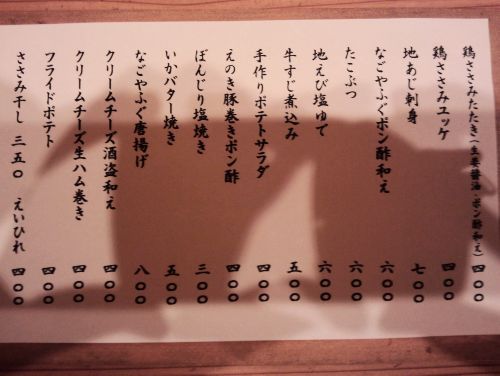 鶏ささみたたき(生姜醤油・ポン酢和え) 四〇〇
鶏ささみユッケ 四〇〇
地あじ刺身 七〇〇
なごやふぐポン酢和え 六〇〇
たこぶつ 六〇〇
地えび塩ゆで 六〇〇
牛すじ煮込み 五〇〇
手作りポテトサラダ 四〇〇
えのき豚巻きポン酢 四〇〇
ぼんじり塩焼き 三〇〇
いかバター焼き 五〇〇
なごやふぐ唐揚げ 八〇〇
クリームチーズ酒盗和え 四〇〇
クリームチーズ生ハム巻き 四〇〇
フライドポテト 四〇〇
ささみ干し 三五〇 えいひれ 四〇〇